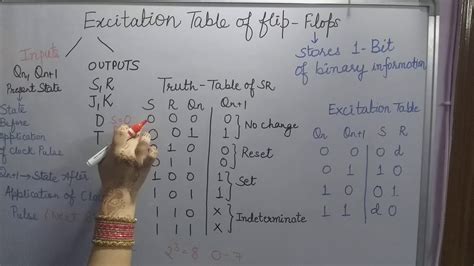 Excitation Table of flip-Flops
Inputs
Qn, Qn+1
Present State
State
Before
application
of Clock Pulse
Qn+1 → State After
Application of Clock
Pulse
OUTPUTS
S, R
J, K
D
T
Stores 1-Bit
of binary information
Truth-Table of SR
S R Qn Qn+1
0 0 0 0
0 0 1 1
No change
0
0 1 1 0
Reset
1 0 0 1
1 0 1 1
Set
1 1 0 x
1 1 1 x
Indeterminate
2³=8 0-7
Excitation Table
Qn Qn+1 S R
0 0 0 d
0 1 1 0
1 0 0 1
1 1 d 0